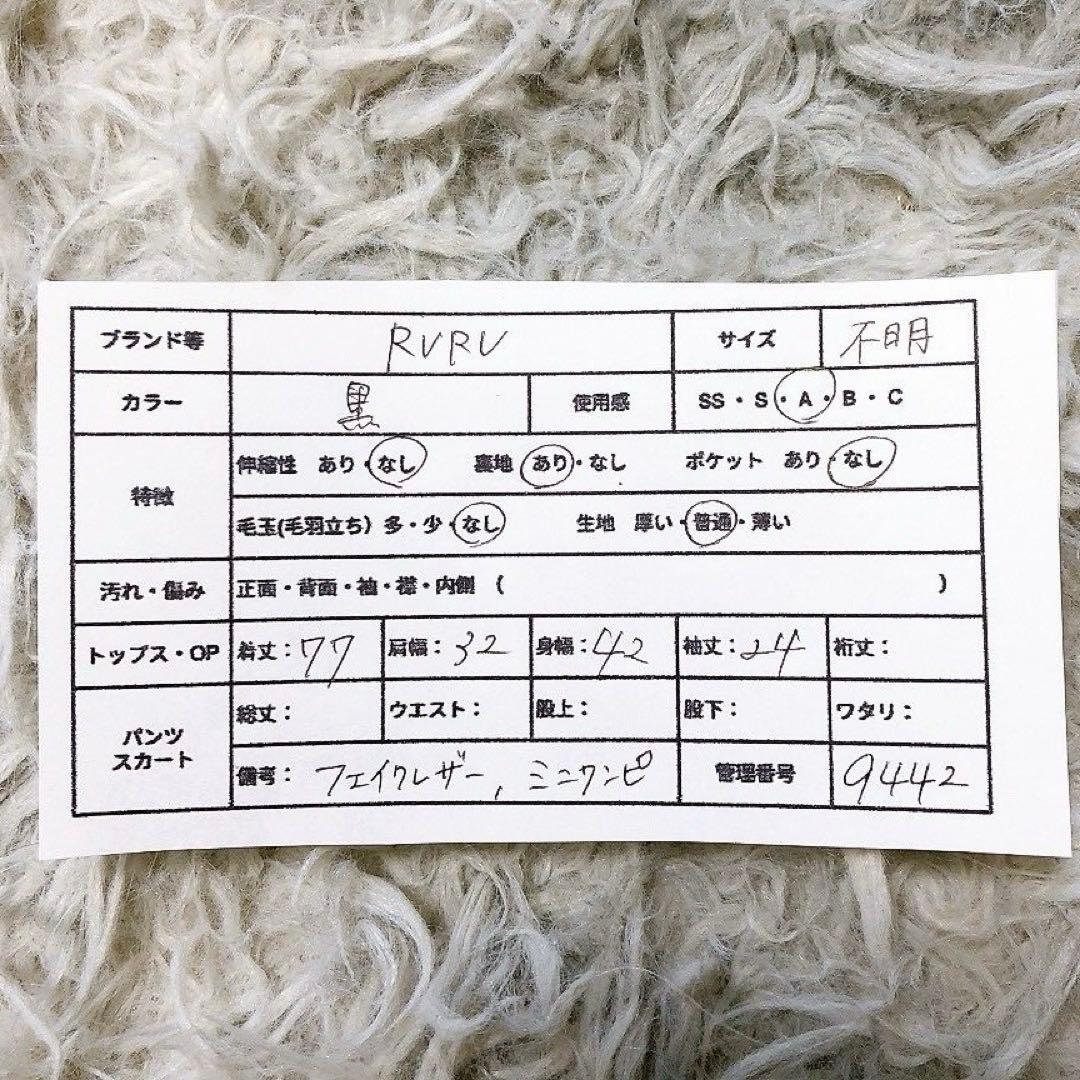 ブランド等 RVRV サイズ 不明
カラー 黒 使用感 SS・S・A・B・C
特徴 伸縮性 あり・なし 裏地 あり・なし ポケット あり・なし
毛玉(毛羽立ち) 多・少・なし 生地 厚い・普通・薄い
汚れ・傷み 正面・背面・袖・襟・内側 ( )
トップス・OP 着丈:77 肩幅:32 身幅:42 袖丈:24 裄丈:
パンツ スカート 総丈: ウエスト: 股上: 股下: ワタリ:
備考: フェイクレザー, ミニワンピ 管理番号 9442